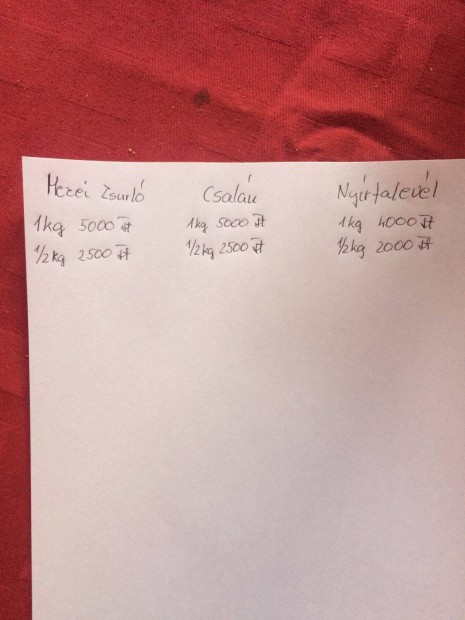 Mezei Zsurló Csalán Nyírfalevél
1kg 5000 Ft 1kg 5000 Ft 1kg 4000 Ft
1/2kg 2500 Ft 1/2kg 2500 Ft 1/2kg 2000 Ft